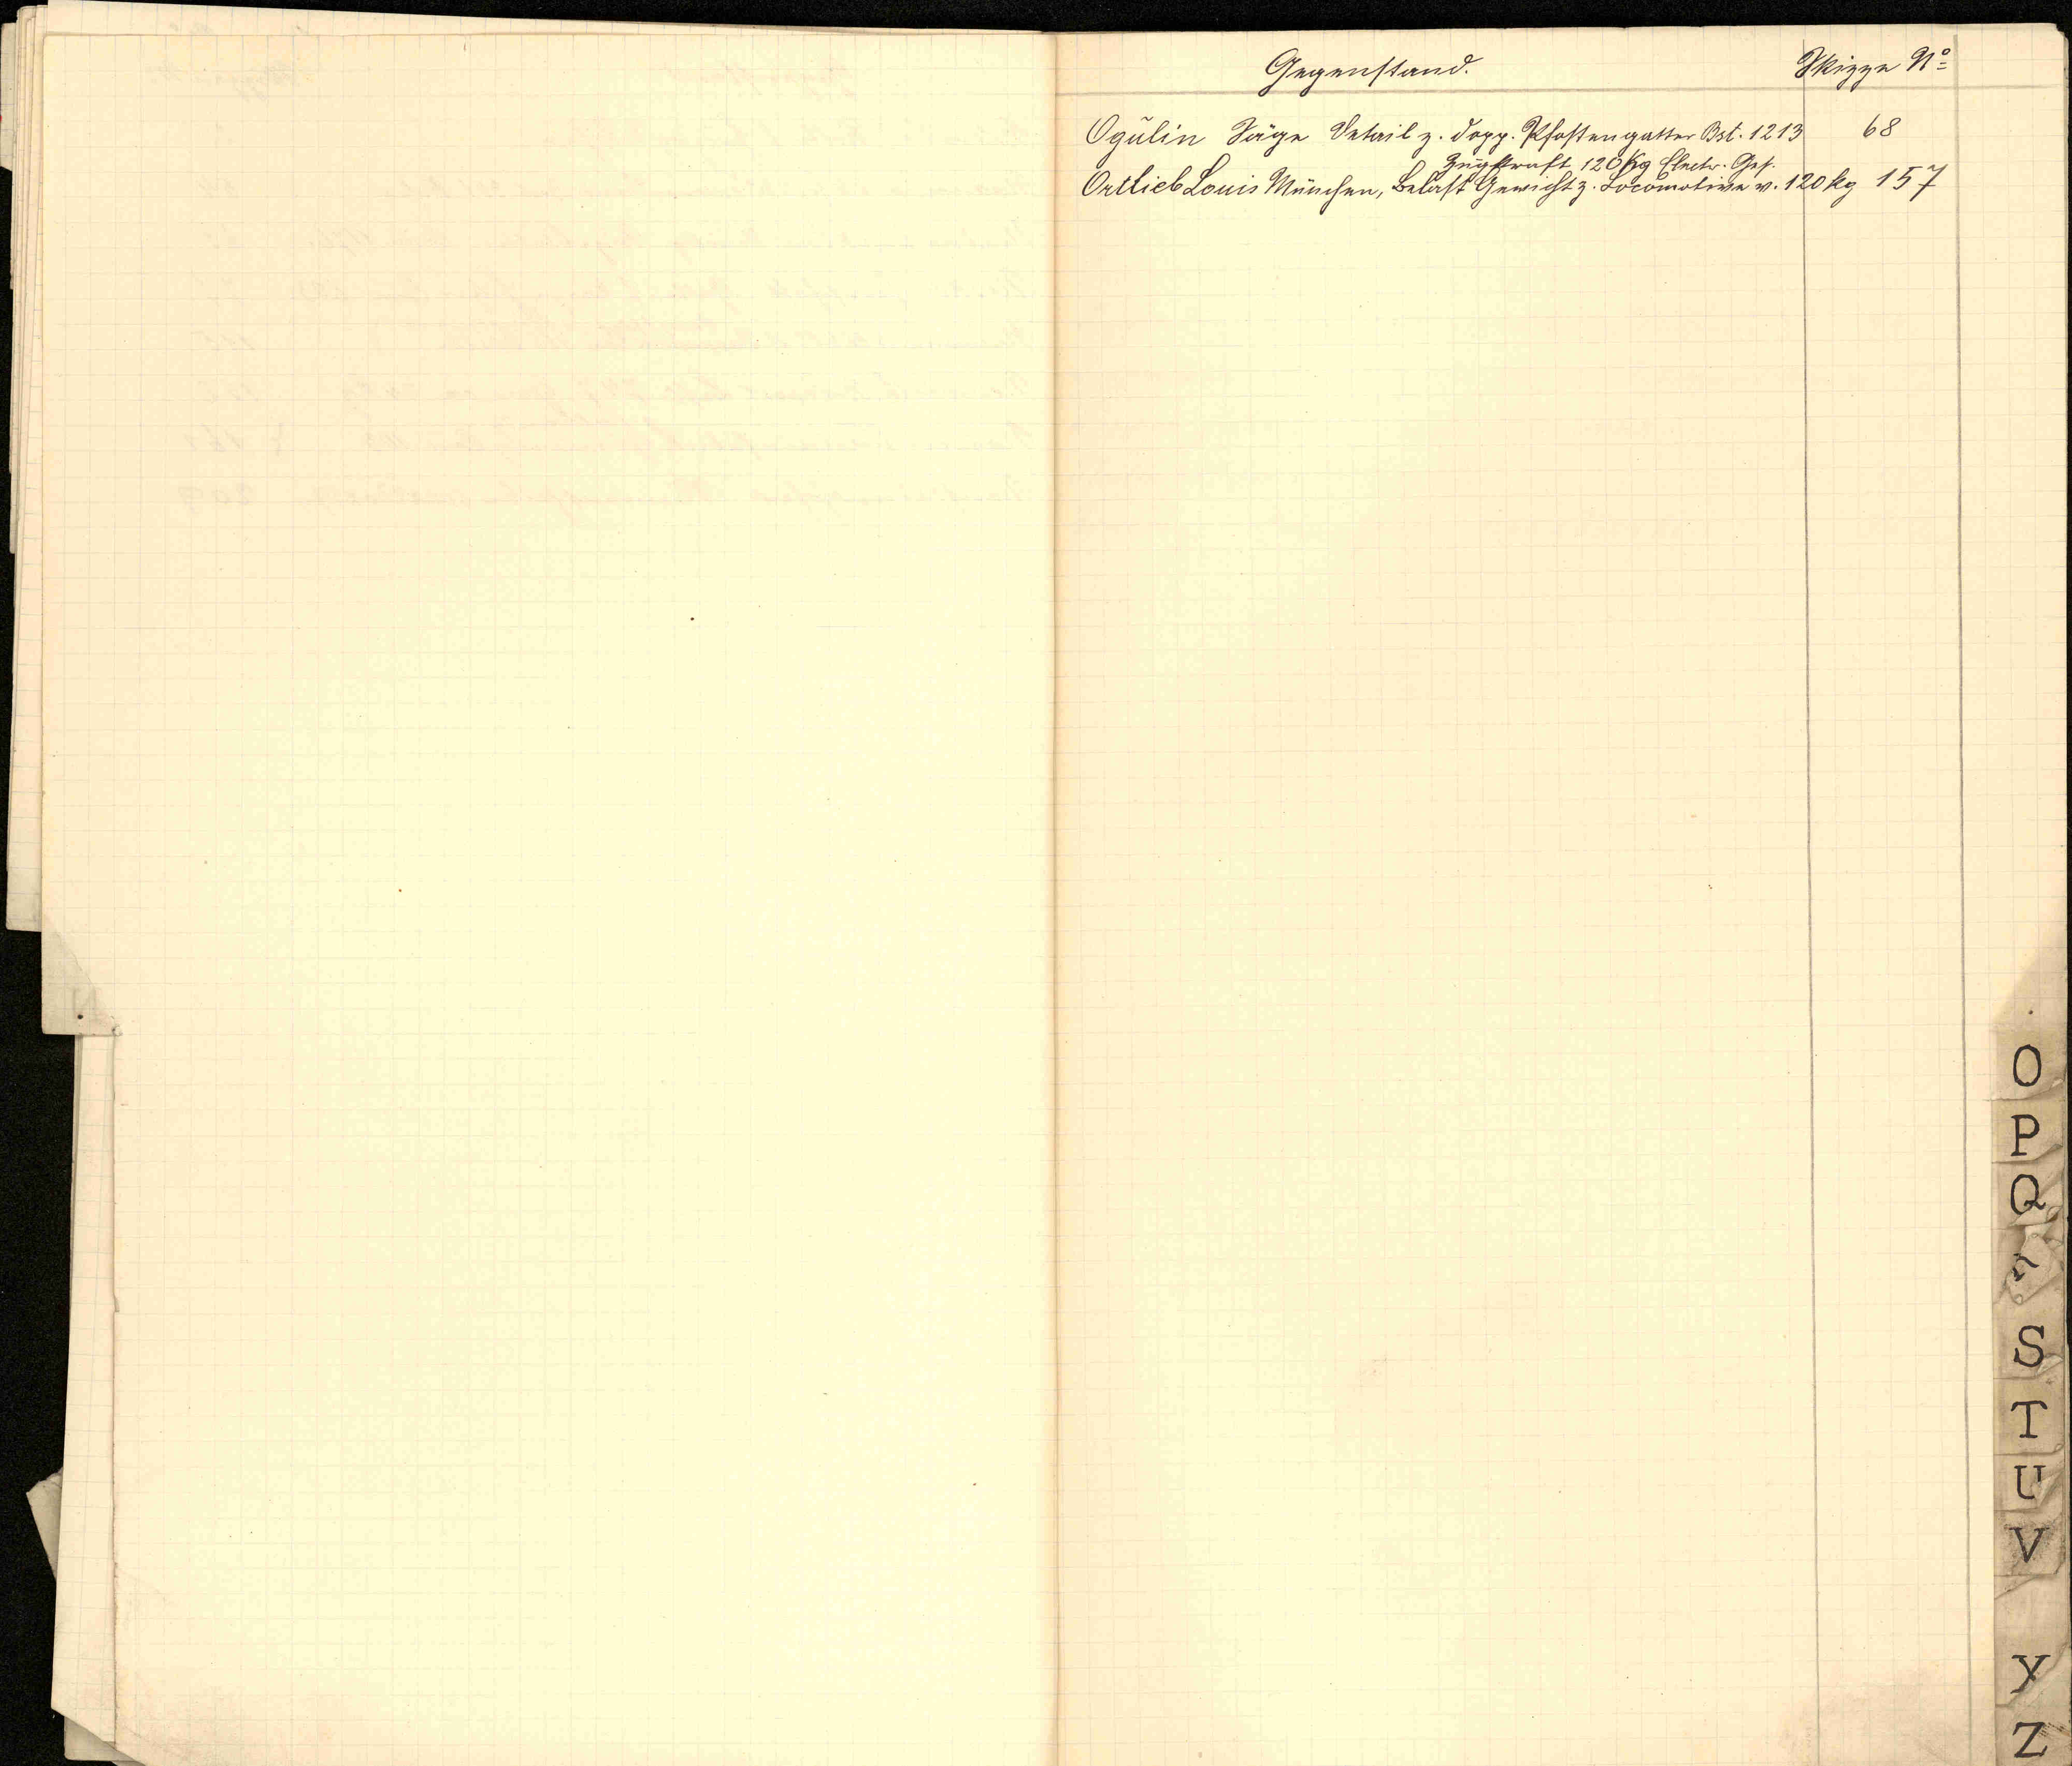 Gegenstand. Skizze No
Ogulin Säge Detail z. dopp. Pfostengatter Bst. 1213 68
Zugkraft 120 Kg Electr. Ges.
Ortlieb Louis München, Belast Gewicht z. Locomotive v. 120 kg 157
O
P
Q
S
T
U
V
Y
Z